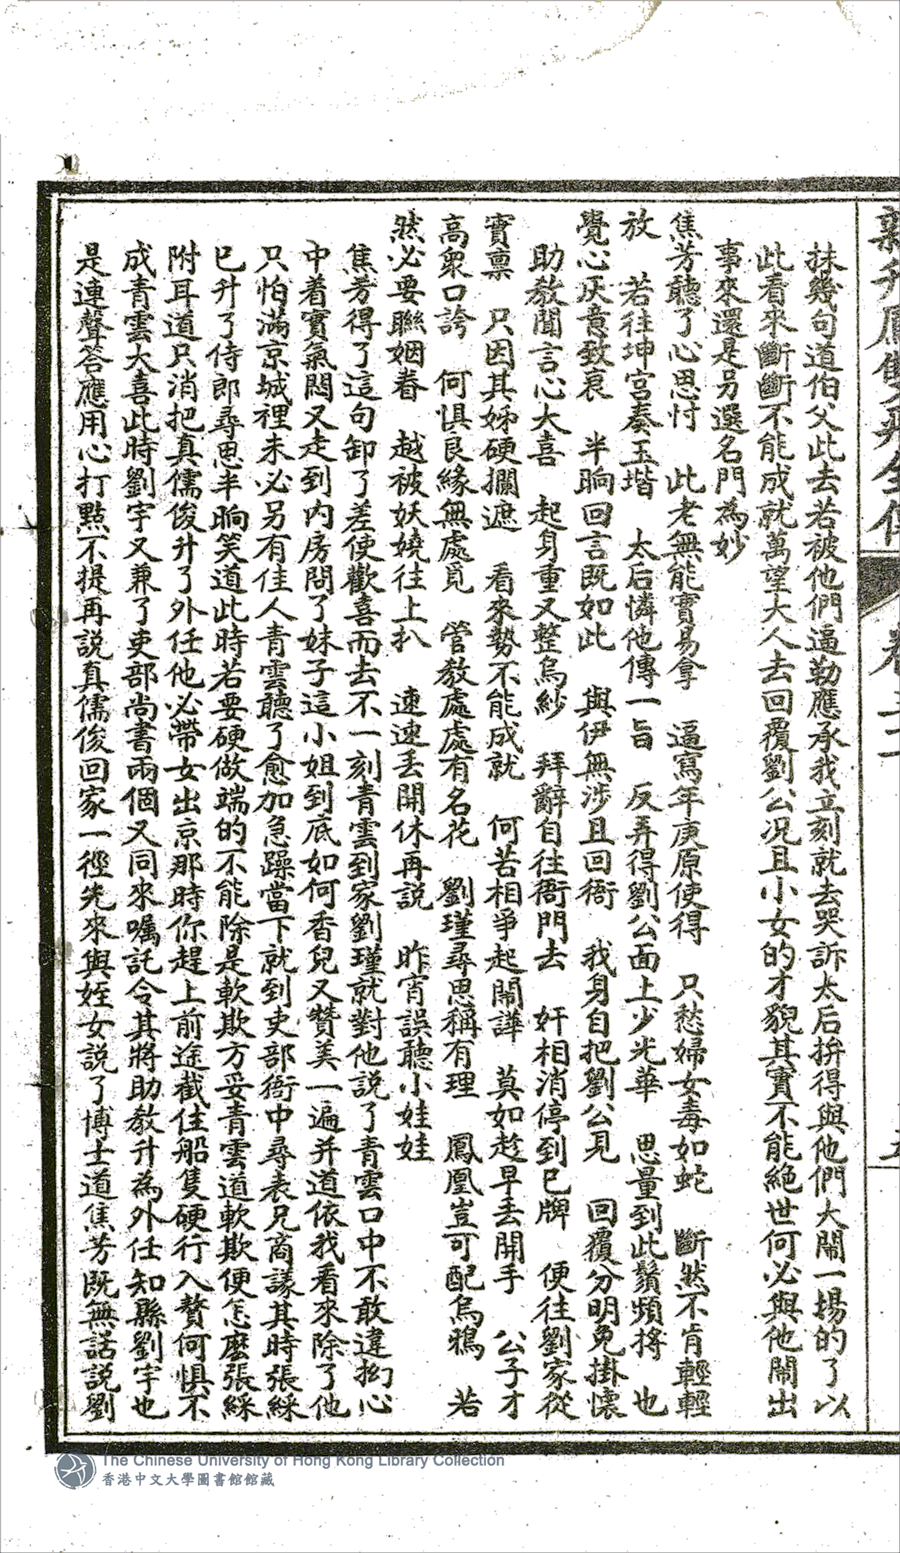 抹幾句道伯父此去若被他們逼勒應承我立刻就去哭訴太后拚得與他們大鬧一塲的了以
此看來斷斷不能成就萬望大人去回覆劉公况且小女的才貌其實不能絶世何必與他鬧出
事來還是另選名門為妙
焦芳聽了心思忖　此老無能實易拿　逼寫年庚原使得　只愁婦女毒如蛇　斷然不肯輕輕
放　若往坤宮奏玉堦　太后憐他傳一旨　反弄得劉公面上少光華　思量到此鬚頻捋　也
覺心灰意致衰　半晌回言既如此　與伊無涉且回衙　我身自把劉公見　回覆分明免掛懷
助教聞言心大喜　起身重又整烏紗　拜辭自往衙門去　奸相消停到巳牌　便往劉家從
實禀　只因其姊硬攔遮　看來勢不能成就　何苦相爭起鬧譁　莫如趁早丢開手　公子才
高衆口誇　何惧良緣無處覓　管教處處有名花　劉瑾尋思稱有理　鳳凰豈可配烏鴉　若
然必要聯姻眷　越被妖嬈往上扒　速速丢開休再説　昨宵誤聽小娃娃
焦芳得了這句卸了差使歡喜而去不一刻青雲到家劉瑾就對他説了青雲口中不敢違拗心
中着實氣悶又走到内房問了妹子這小姐到底如何香兒又賛美一遍并道依我看來除了他
只怕滿京城裡未必另有佳人青雲聽了愈加急躁當下就到吏部衙中尋表兄商議其時張綵
巳升了侍郎尋思半晌笑道此時若要硬做端的不能除是軟欺方妥青雲道軟欺便怎麽張綵
附耳道只消把真儒俊升了外任他必帶女出京那時你趕上前途截住船隻硬行入贅何惧不
成青雲大喜此時劉宇又兼了吏部尚書兩個又同來囑託令其將助教升為外任知縣劉宇也
是連聲答應用心打點不提再説真儒俊回家一徑先來與姪女説了博士道焦芳既無話説劉
The Chinese University of Hong Kong Library Collection
香港中文大學圖書館館藏